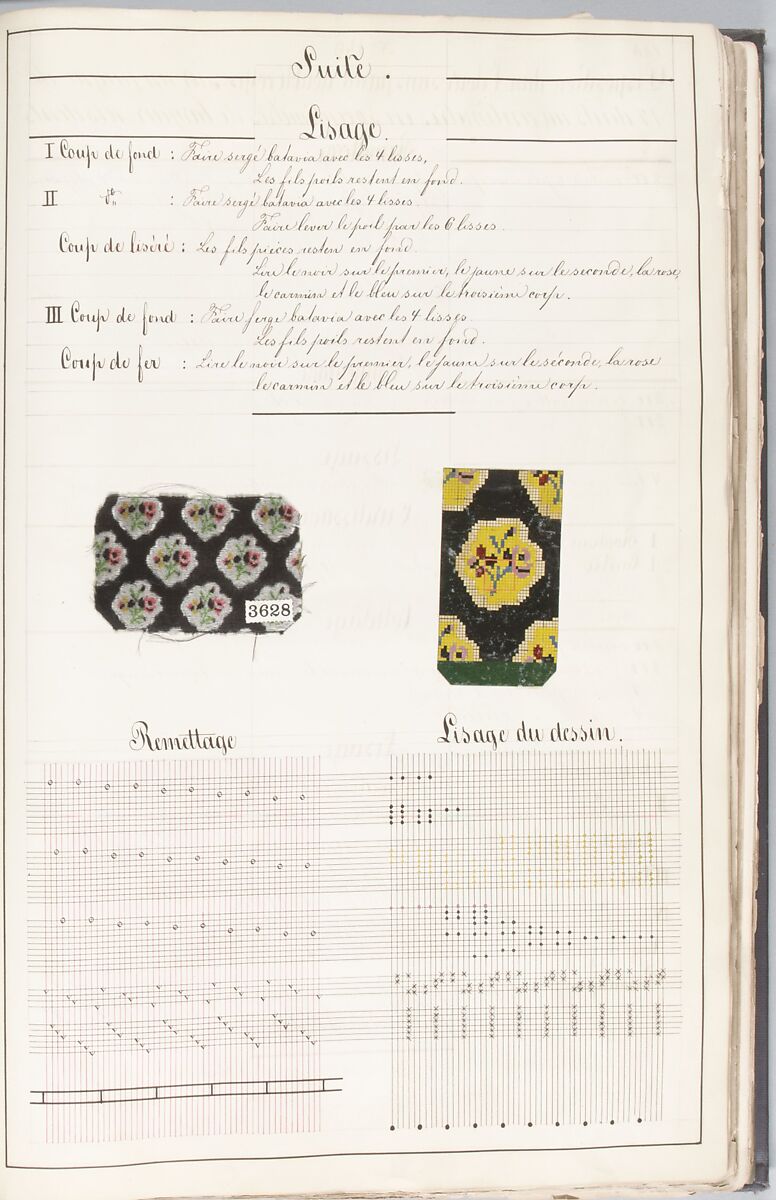 Suite.
Lisage.
I Coup de fond : Faire sergé batavia avec les 4 lisses,
Les fils poils restent en fond.
II : Faire sergé batavia avec les 4 lisses
Faire lever le poil par les 6 lisses.
Coup de liséré : Les fils pièces resten en fond.
Lire le noir sur le premier, le jaune sur le seconde, la rose,
le carmin et le bleu sur le troisième corp.
III Coup de fond : Faire serge batavia avec les 4 lisses
Les fils poils restent en fond.
Coup de fer : Lire le noir sur le premier, le jaune sur le séconde, la rose
le carmin et le bleu sur le troisième corp.
3628
Remettage
Lisage du dessin.